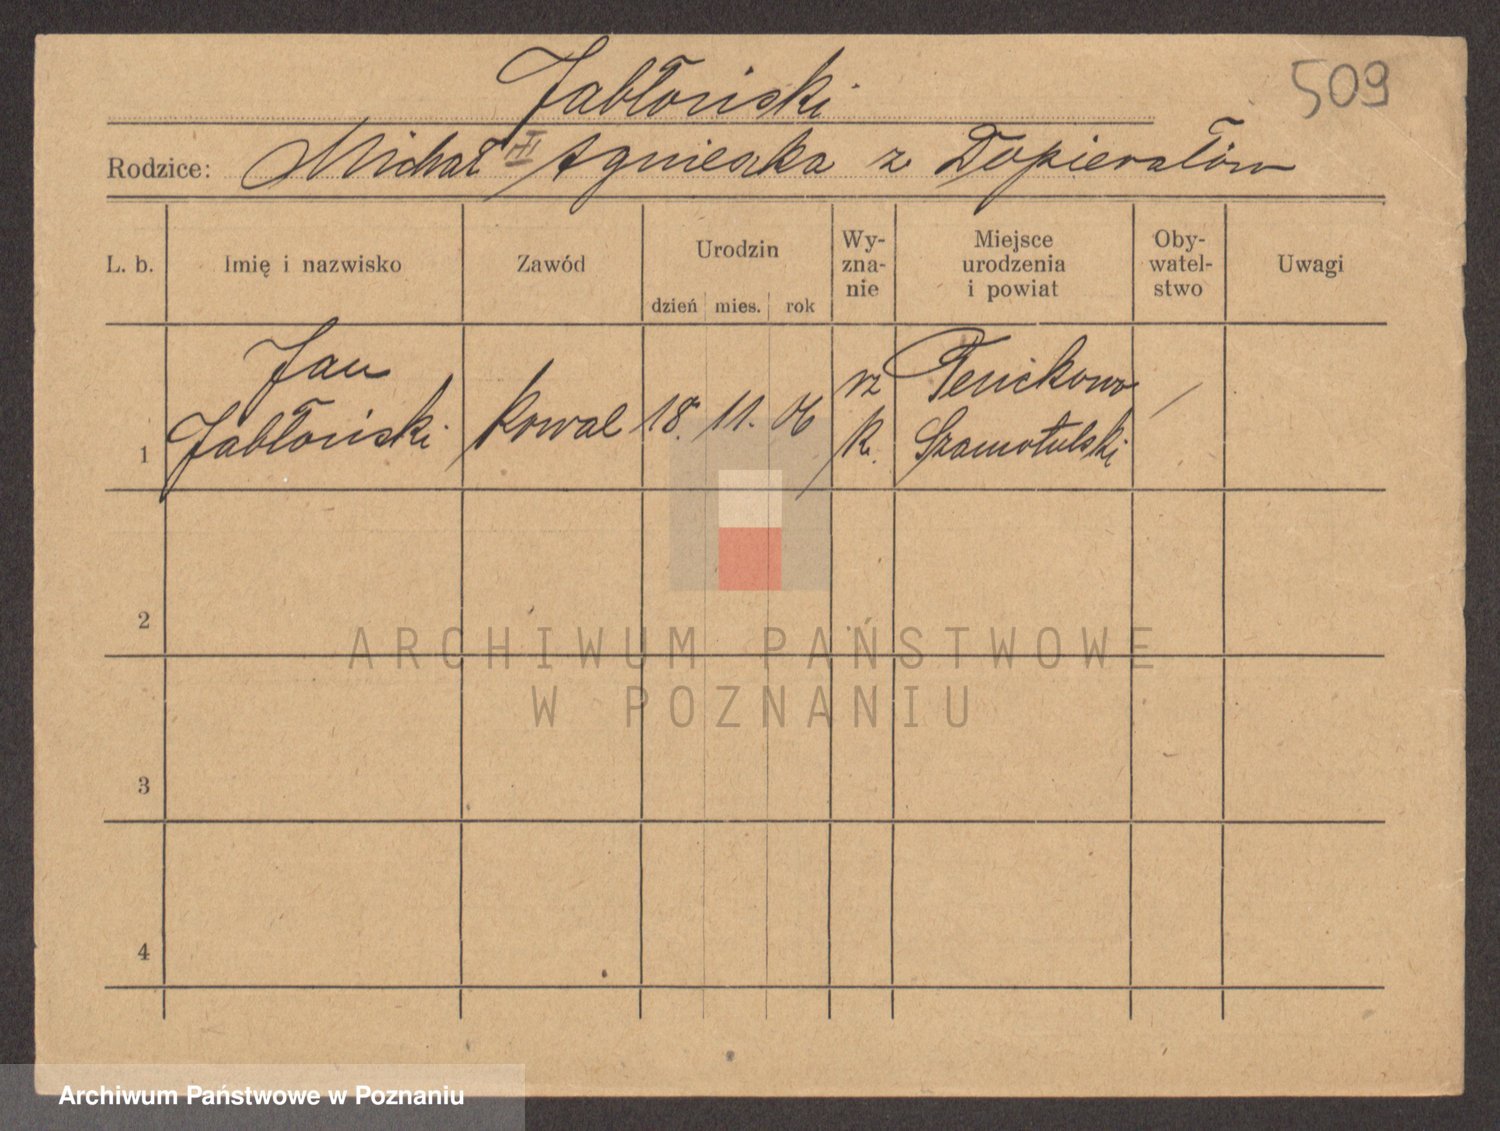 Jabłoński
509
Rodzice: Michał Agnieszka z Dopierałów
L. b.
Imię i nazwisko
Zawód
Urodzin
dzień mies. rok
Wy-
zna-
nie
Miejsce
urodzenia
i powiat
Oby-
watel-
stwo
Uwagi
1
Jan
Jabłoński
kowal
18. 11. 06
rz
k.
Szamotulski
2
3
4
ARCHIWUM PAŃSTWOWE
W POZNANIU
Archiwum Państwowe w Poznaniu